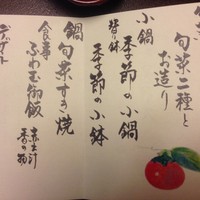 旬菜二種と
お造り
小鍋 季節の小鍋
替り鉢 季節の小鉢
鍋 旬菜すき焼
食事 ふわ玉御飯
赤出汁
香の物
デザート